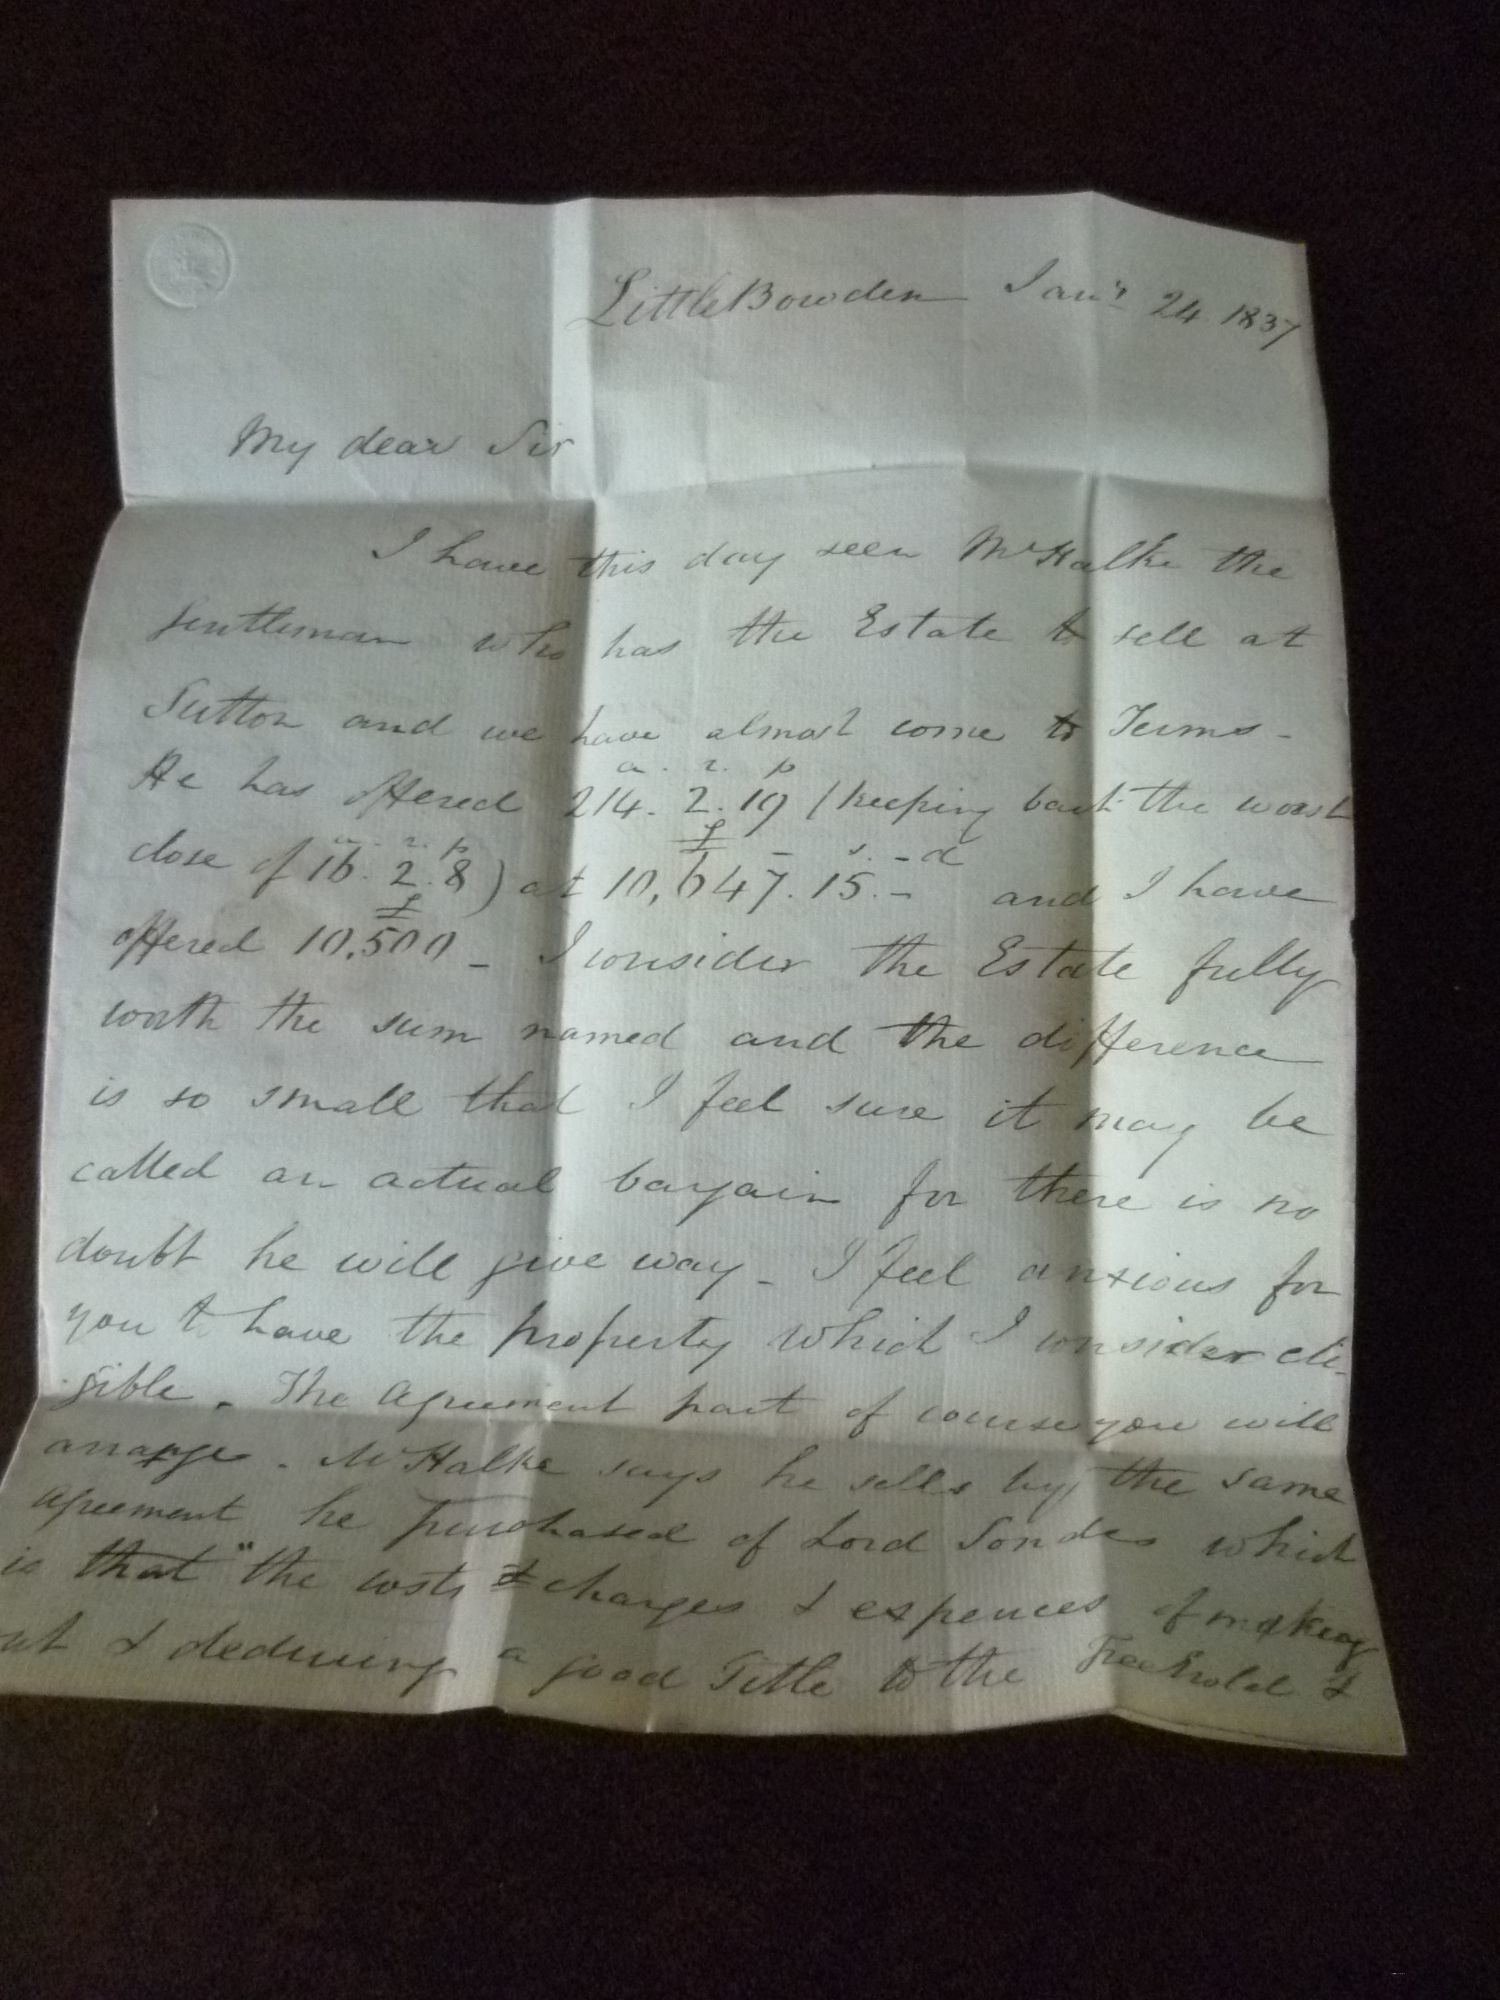 Little Bowden Jany 24. 1837
My dear Sir
I have this day seen Mr Halke the
gentleman who has the Estate to sell at
Sutton and we have almost come to Terms -
a. r. p
He has offered 214. 2. 19 (keeping back the worst
a. r. p £ - s. - d
close of 16. 2. 8) at 10,647. 15. - and I have
£
offered 10,500 - I consider the Estate fully
worth the sum named and the difference
is so small that I feel sure it may be
called an actual bargain for there is no
doubt he will give way - I feel anxious for
you to have the property which I consider eli-
gible. The Agreement part of course you will
arrange. Mr Halke says he sells by the same
agreement he purchased of Lord Sondes which
is that "the costs & charges & expences of making
out & deducing a good Title to the Freehold &